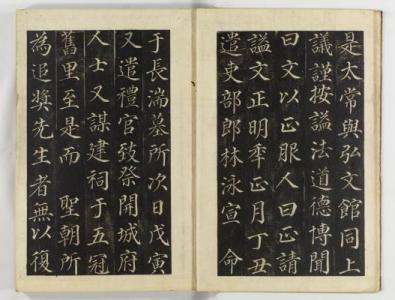 是太常與弘文館同上
議謹按謚法道德博聞
曰文以正服人曰正請
謚文正明年正月丁丑
遣吏部郎林泳宣 命
于長湍墓所次日戊寅
又遣禮官致祭開城府
人士又謀建祠于五冠
舊里至是而 聖朝所
為追奬先生者無以復